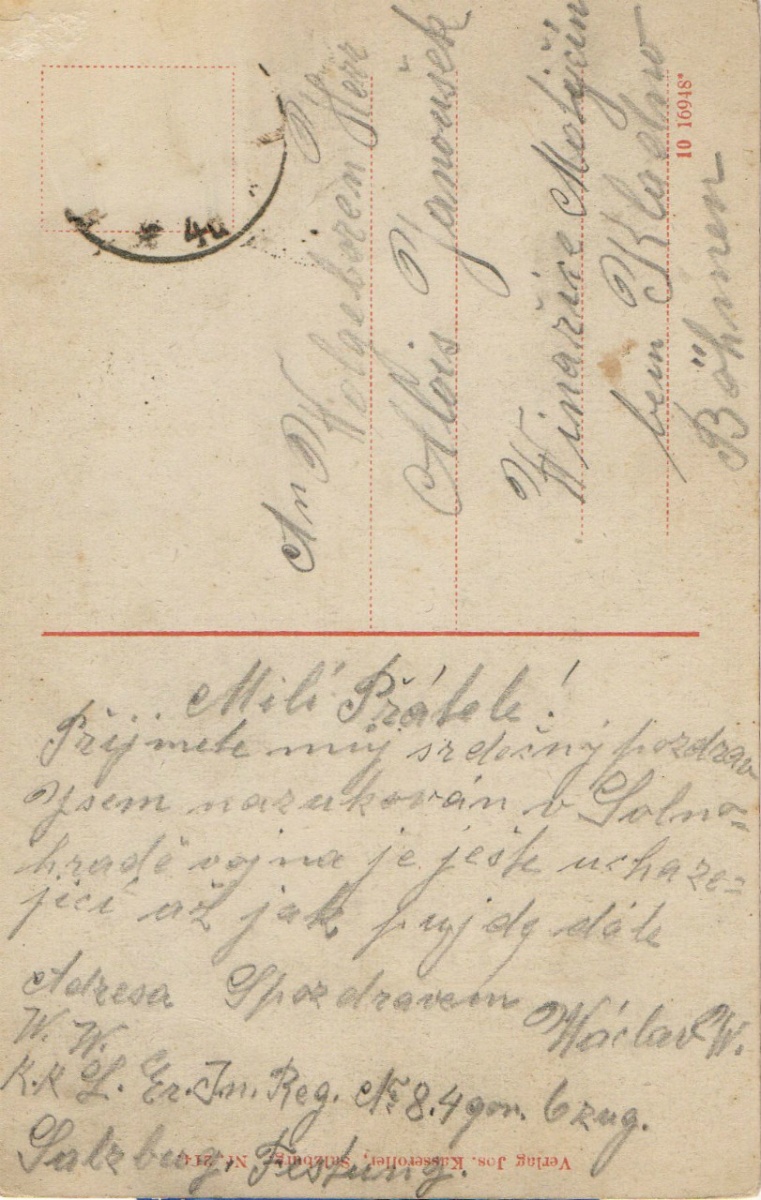 An
Wolgeborem Herr
Alois Janoušek
Winařice Motyčín
bein Kladno
Böhmen
10 16948*
Milí Přátele!
Přijmete můj srdečný pozdrav
Jsem narukován v Solno=
hradě vojna je ješte uchaze=
jicí až jak pujde dále
Adresa Spozdravem
Václav W.
W. W.
K.K L. Er. In. Reg. № 8. 4 gon. 6 zug.
Salzbug, Festung.
Verlag Jos. Kasseroller, Salzburg. Nr. 214.